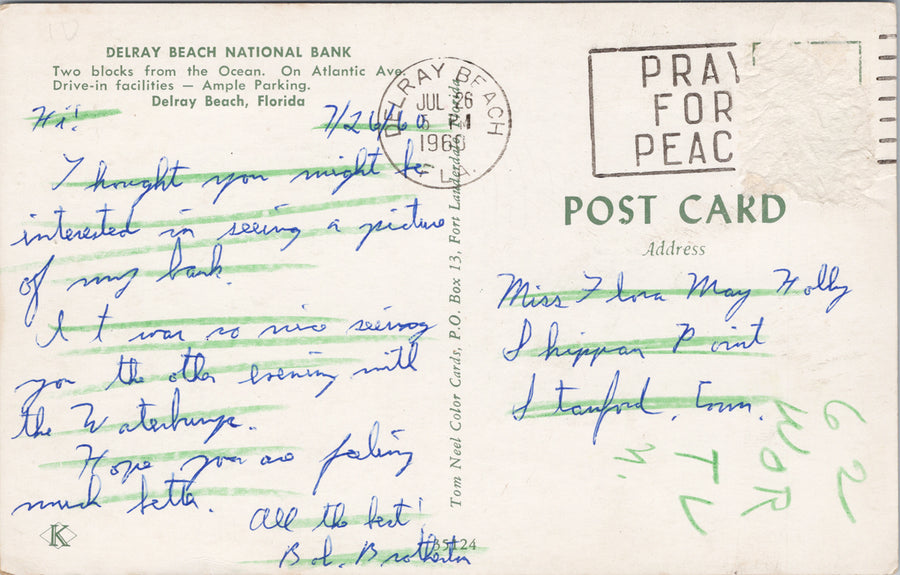 DELRAY BEACH NATIONAL BANK
Two blocks from the Ocean. On Atlantic Ave.
Drive-in facilities — Ample Parking.
Delray Beach, Florida
Hi!
7/26/60
I thought you might be
interested in seeing a picture
of my bank.
It was so nice seeing
you the other evening with
the Waterburys.
Hope you are feeling
much better.
All the best!
Bob Brotherton
K
Tom Neel Color Cards, P.O. Box 13, Fort Lauderdale, Florida
DELRAY BEACH
JUL 26
5 PM
1960
FLA.
PRAY
FOR
PEAC
POST CARD
Address
Miss Flora May Holly
Shippan Point
Stamford, Conn.
62
WOR
TL